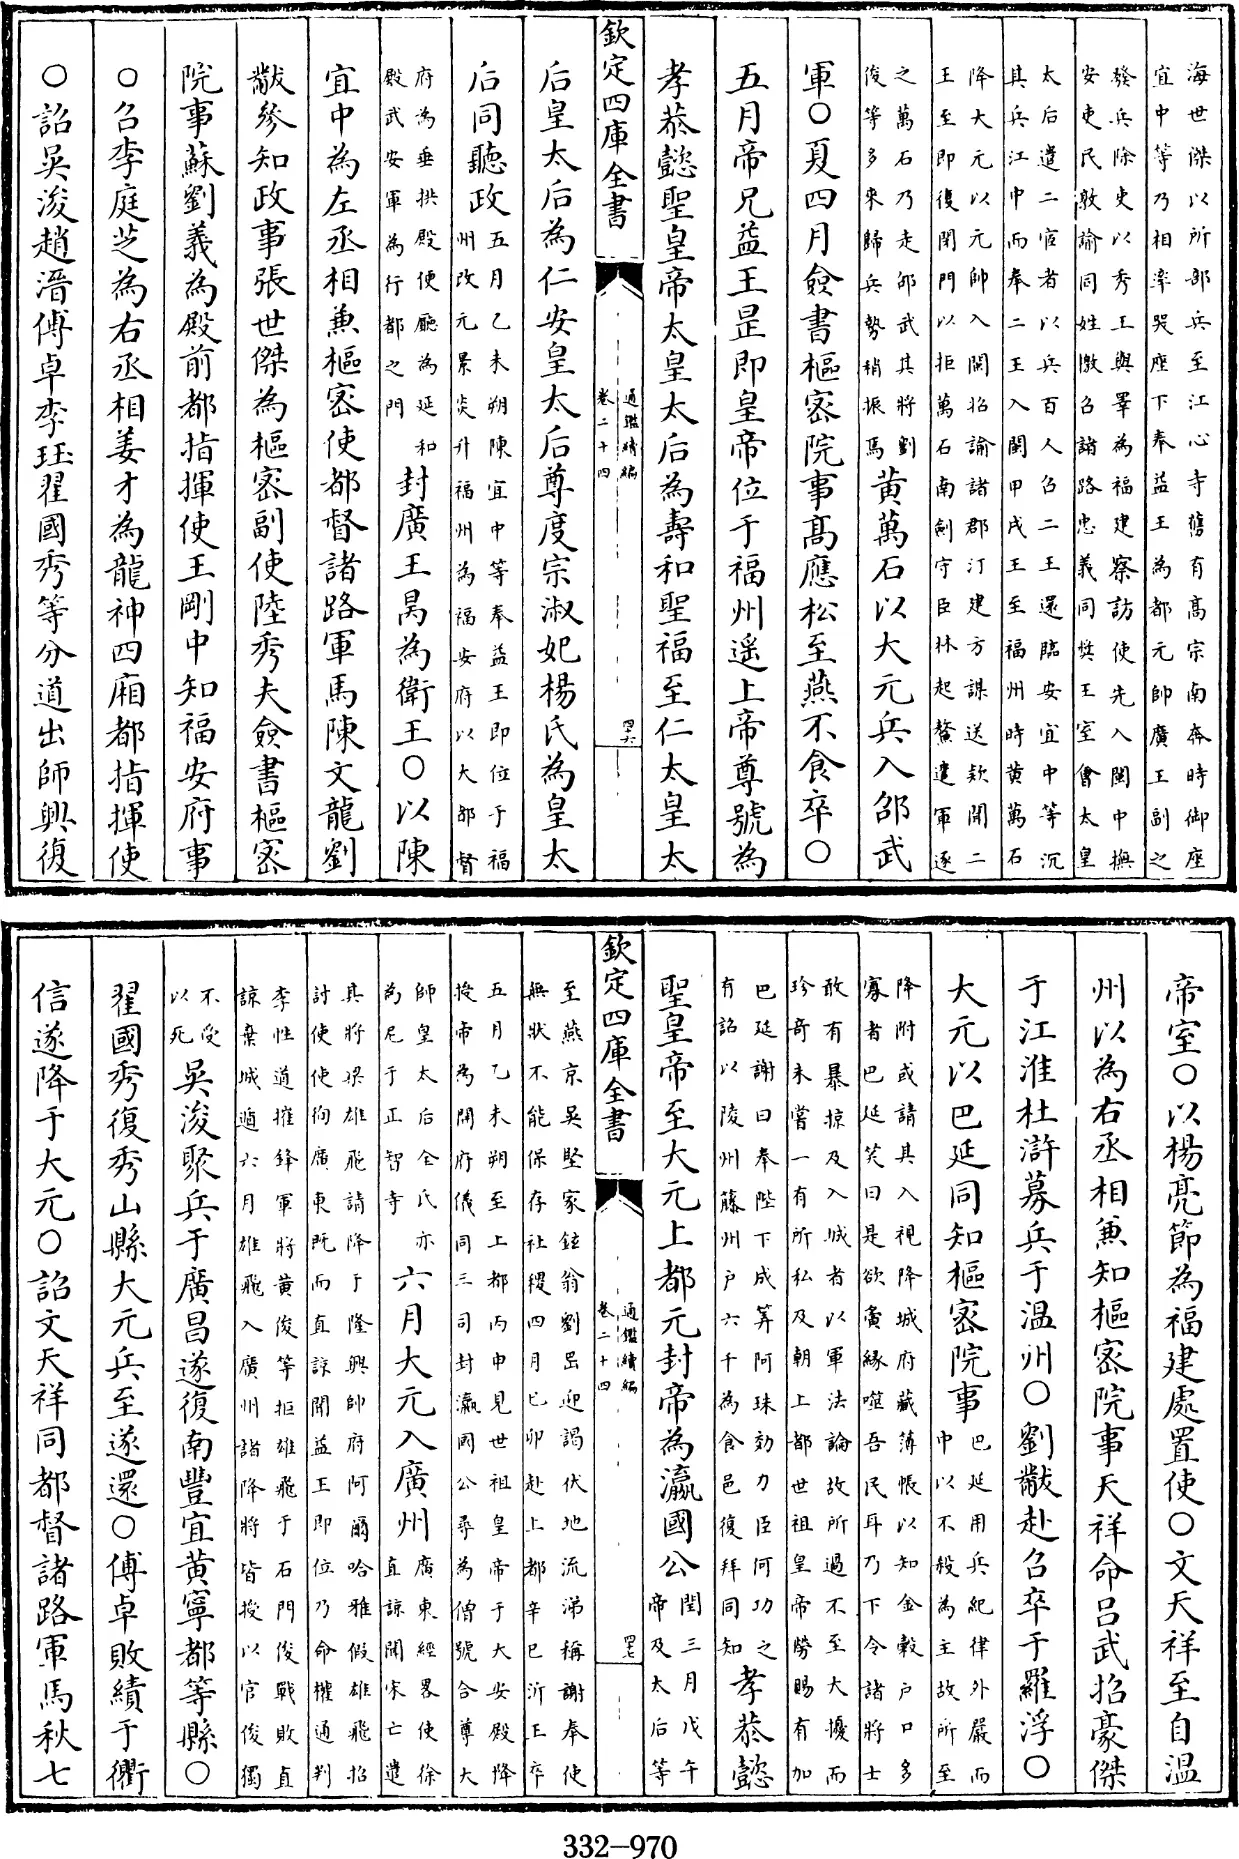 海世傑以所部兵至江心寺舊有髙宗南奔時御座
宜中等乃相率哭座下奉益王為都元帥廣王副之
發兵除吏以秀王與睪為福建察訪使先入閩中撫
安吏民諭同姓檄召諸路忠義同奬王室會太皇
太后遣二宦者以兵百人召二王還臨安宜中等沉
其兵江中而奉二王入閩甲戌王至福州時黄萬石
降大元以元帥入閩招諭諸郡汀建方謀送欵聞二
王至即復閉門以拒萬石南劍守臣林起鰲遣軍逐
之萬石乃走邵武其將劉
俊等多來歸兵勢稍振焉
黄萬石以大元兵入邵武
軍○夏四月僉書樞密院事髙應松至燕不食卒○
五月帝兄益王昰即皇帝位于福州遥上帝尊號為
孝恭懿聖皇帝太皇太后為壽和聖福至仁太皇太
欽定四庫全書
通鑑續編
卷二十四
四六
后皇太后為仁安皇太后尊度宗淑妃楊氏為皇太
后同聽政
五月乙未朔陳宜中等奉益王即位于福
州改元景炎升福州為福安府以大都督
府為垂拱殿便廳為延和
殿武安軍為行都之門
封廣王昺為衛王○以陳
宜中為左丞相兼樞密使都督諸路軍馬陳文龍劉
黻參知政事張世傑為樞密副使陸秀夫僉書樞密
院事蘇劉義為殿前都指揮使王剛中知福安府事
○召李庭芝為右丞相姜才為龍神四廂都指揮使
○詔吳浚趙溍傅卓李珏翟國秀等分道出師興復
帝室○以楊亮節為福建處置使○文天祥至自温
州以為右丞相兼知樞密院事天祥命吕武招豪傑
于江淮杜滸募兵于温州○劉黻赴召卒于羅浮○
大元以巴延同知樞密院事
巴延用兵紀律外嚴而
中以不殺為主故所至
降附或請其入視降城府藏簿帳以知金穀户口多
寡者巴延笑曰是欲夤緣噬吾民耳乃下令諸將士
敢有暴掠及入城者以軍法論故所過不至大擾而
珍奇未嘗一有所私及朝上都世祖皇帝勞賜有加
巴延謝曰奉陛下成筭阿珠効力臣何功之
有詔以陵州藤州户六千為食邑復拜同知
孝恭懿
聖皇帝至大元上都元封帝為瀛國公
閏三月戊午
帝及太后等
至燕京吳堅家鉉翁劉岊迎謁伏地流涕稱謝奉使
無狀不能保存社稷四月己卯赴上都辛巳沂王卒
五月乙未朔至上都丙申見世祖皇帝于大安殿降
授帝為開府儀同三司封瀛國公尋為僧號合尊大
師皇太后全氏亦
為尼于正智寺
六月大元入廣州
廣東經畧使徐
直諒聞宋亡遣
其將梁雄飛請降于隆興帥府阿爾哈雅假雄飛招
討使使徇廣東既而直諒聞益王即位乃命權通判
李性道摧鋒軍將黄俊等拒雄飛于石門俊戰敗直
諒棄城遁六月雄飛入廣州諸降將皆授以官俊獨
不受
以死
吳浚聚兵于廣昌遂復南豐宜黄寧都等縣○
翟國秀復秀山縣大元兵至遂還○傅卓敗績于衢
信遂降于大元○詔文天祥同都督諸路軍馬秋七
欽定四庫全書
通鑑續編
卷二十四
四七
332-970